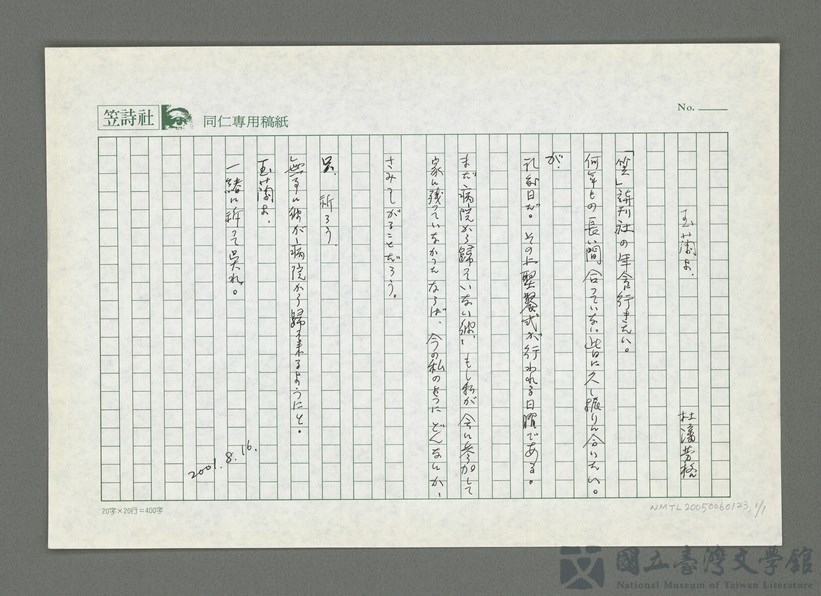 笠詩社
同仁專用稿紙
No.
玉蘭よ、
杜潘芳格
「笠」詩刊社の年会行きたい。
何年もの長い間 合っていない皆に久し振りに合いたい。
が、
礼拝日だ。その上聖餐式が行われる日曜である。
まだ病院から歸っていない彼、もし私が会に参加して
家に残っていなかったならば、今の私のようにどんなにか、
さみしがることだろう。
祈ろう、
無事に彼が病院から歸来れるようにと。
玉蘭よ、
一緒に祈って呉れ。
2001.8.16.
20字×20行=400字
NMTL20050060123, 1/1
國立臺灣文學館
National Museum of Taiwan Literature